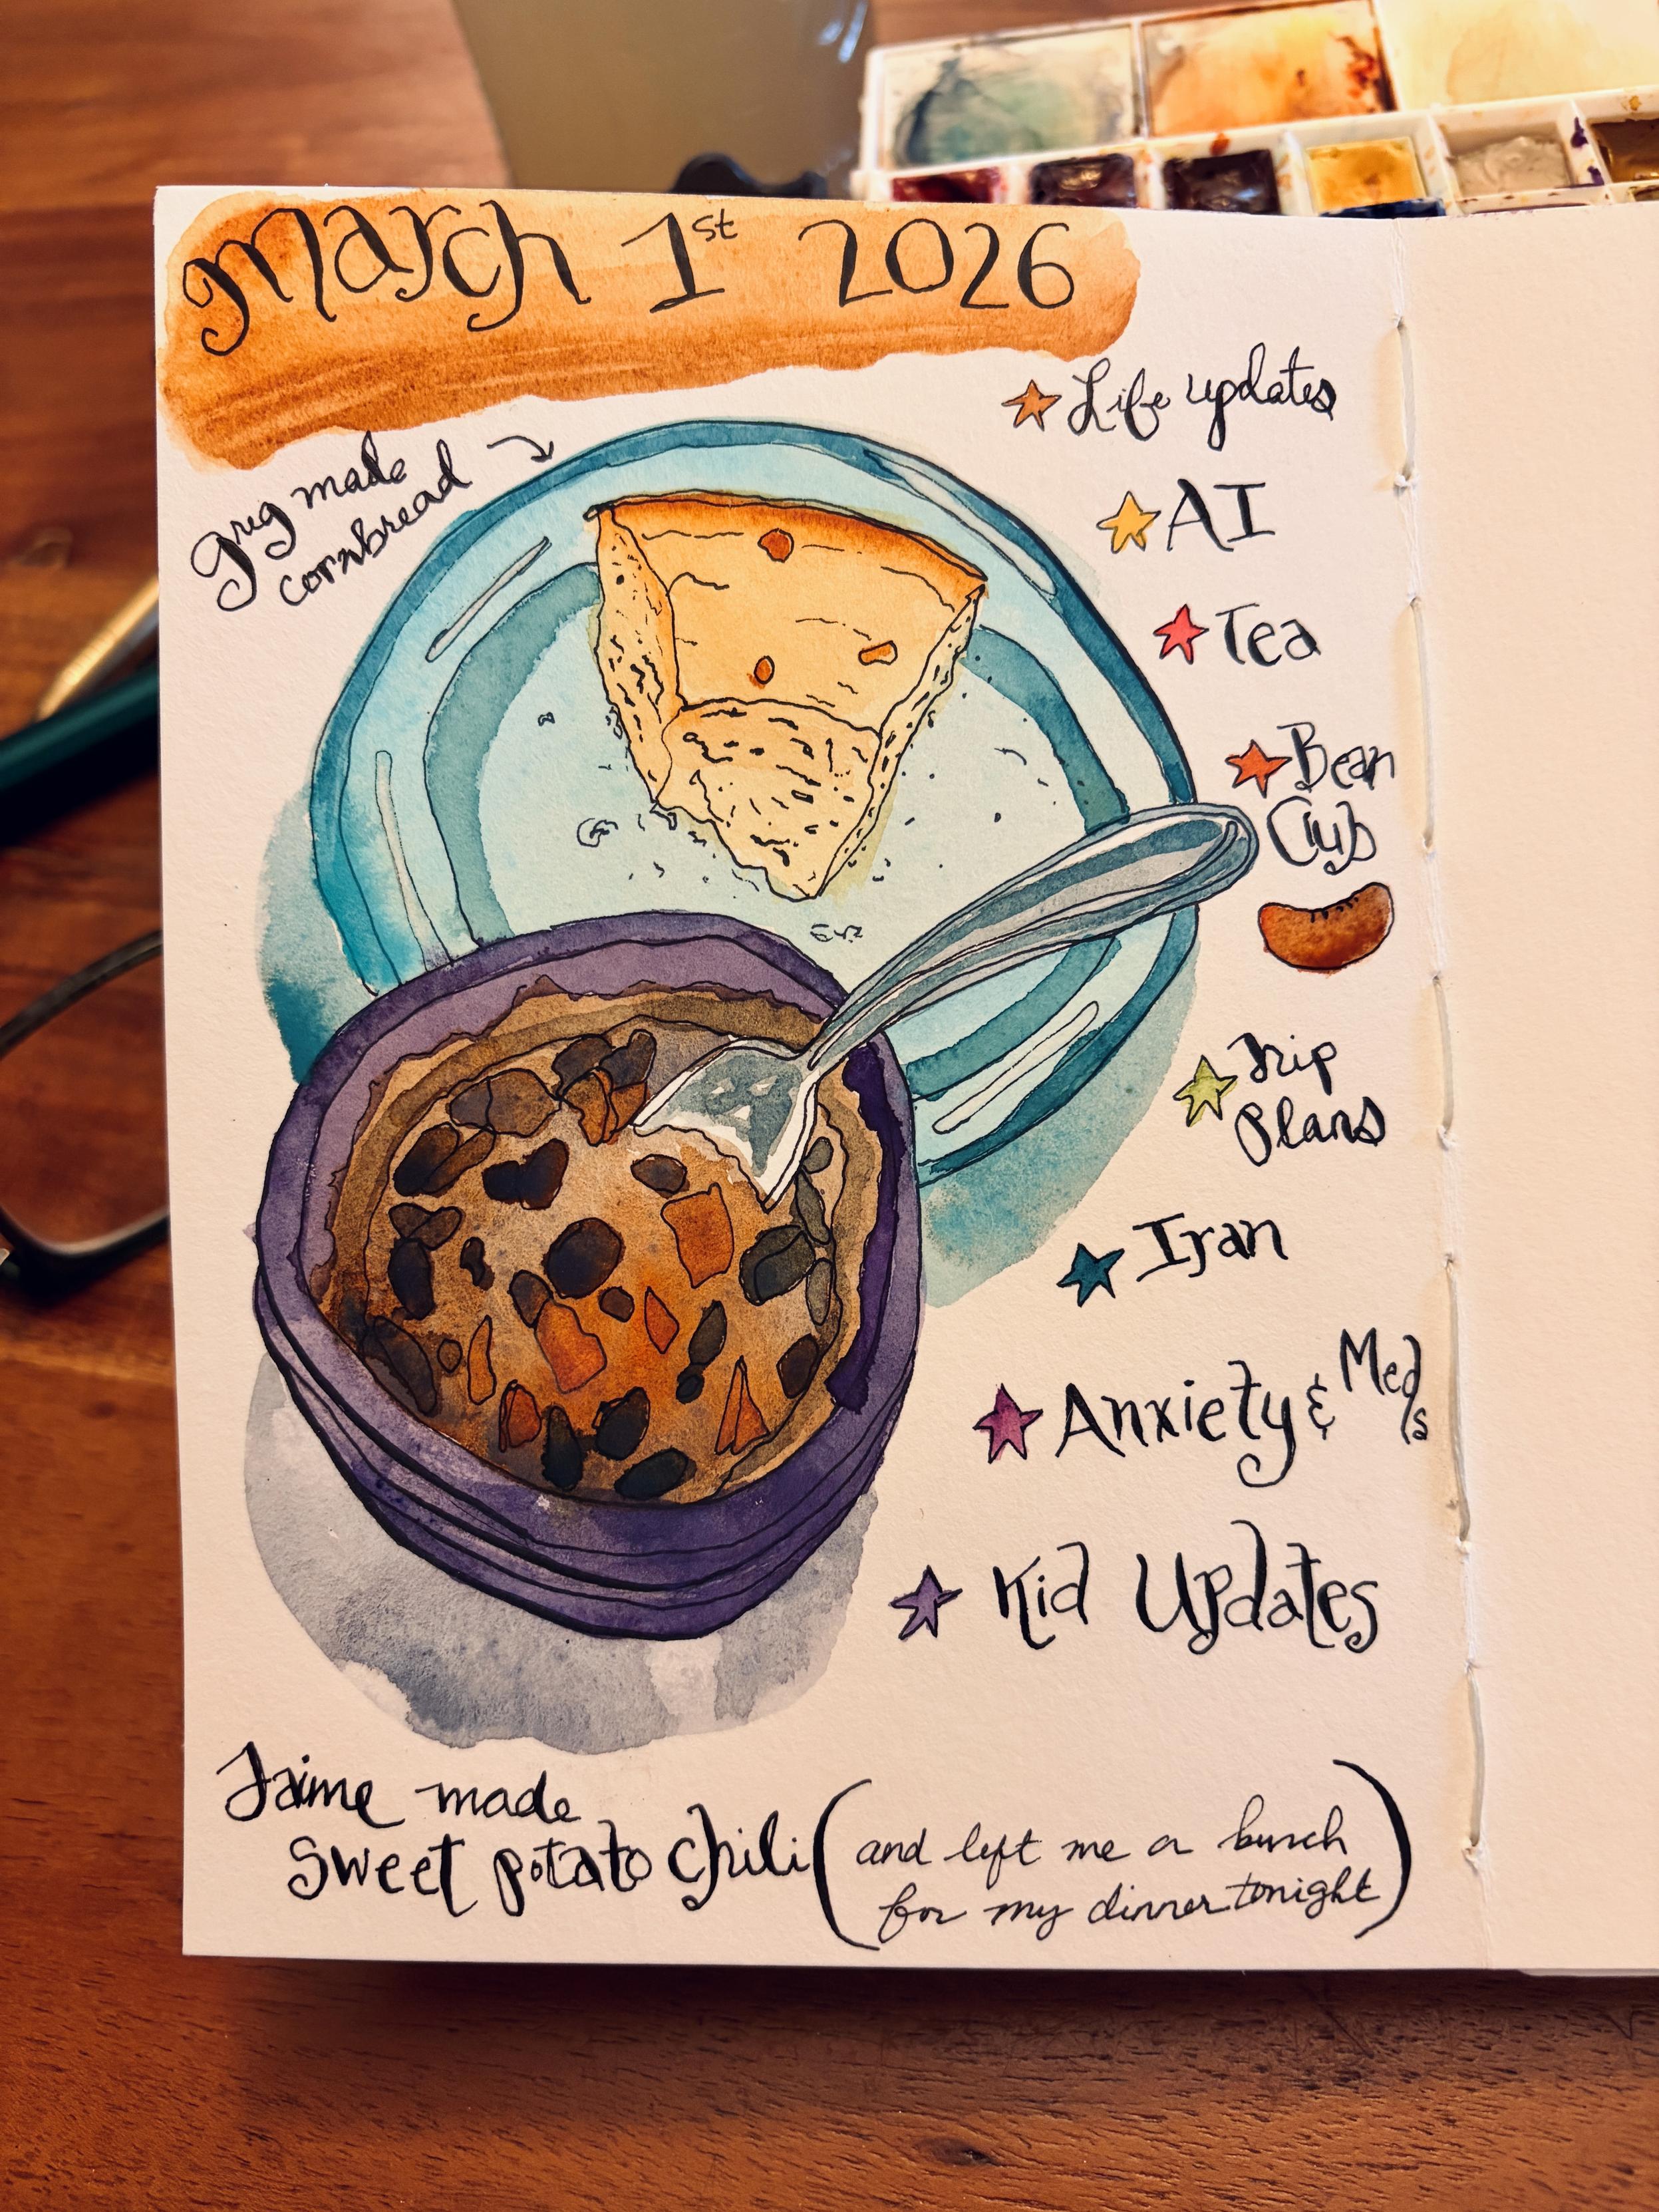 March 1st 2026
Greg made
cornbread
Life updates
AI
Tea
Bean
Club
Trip
Plans
Iran
Anxiety & Meds
Kid Updates
Jaime made
sweet potato chili
(and left me a bunch
for my dinner tonight)